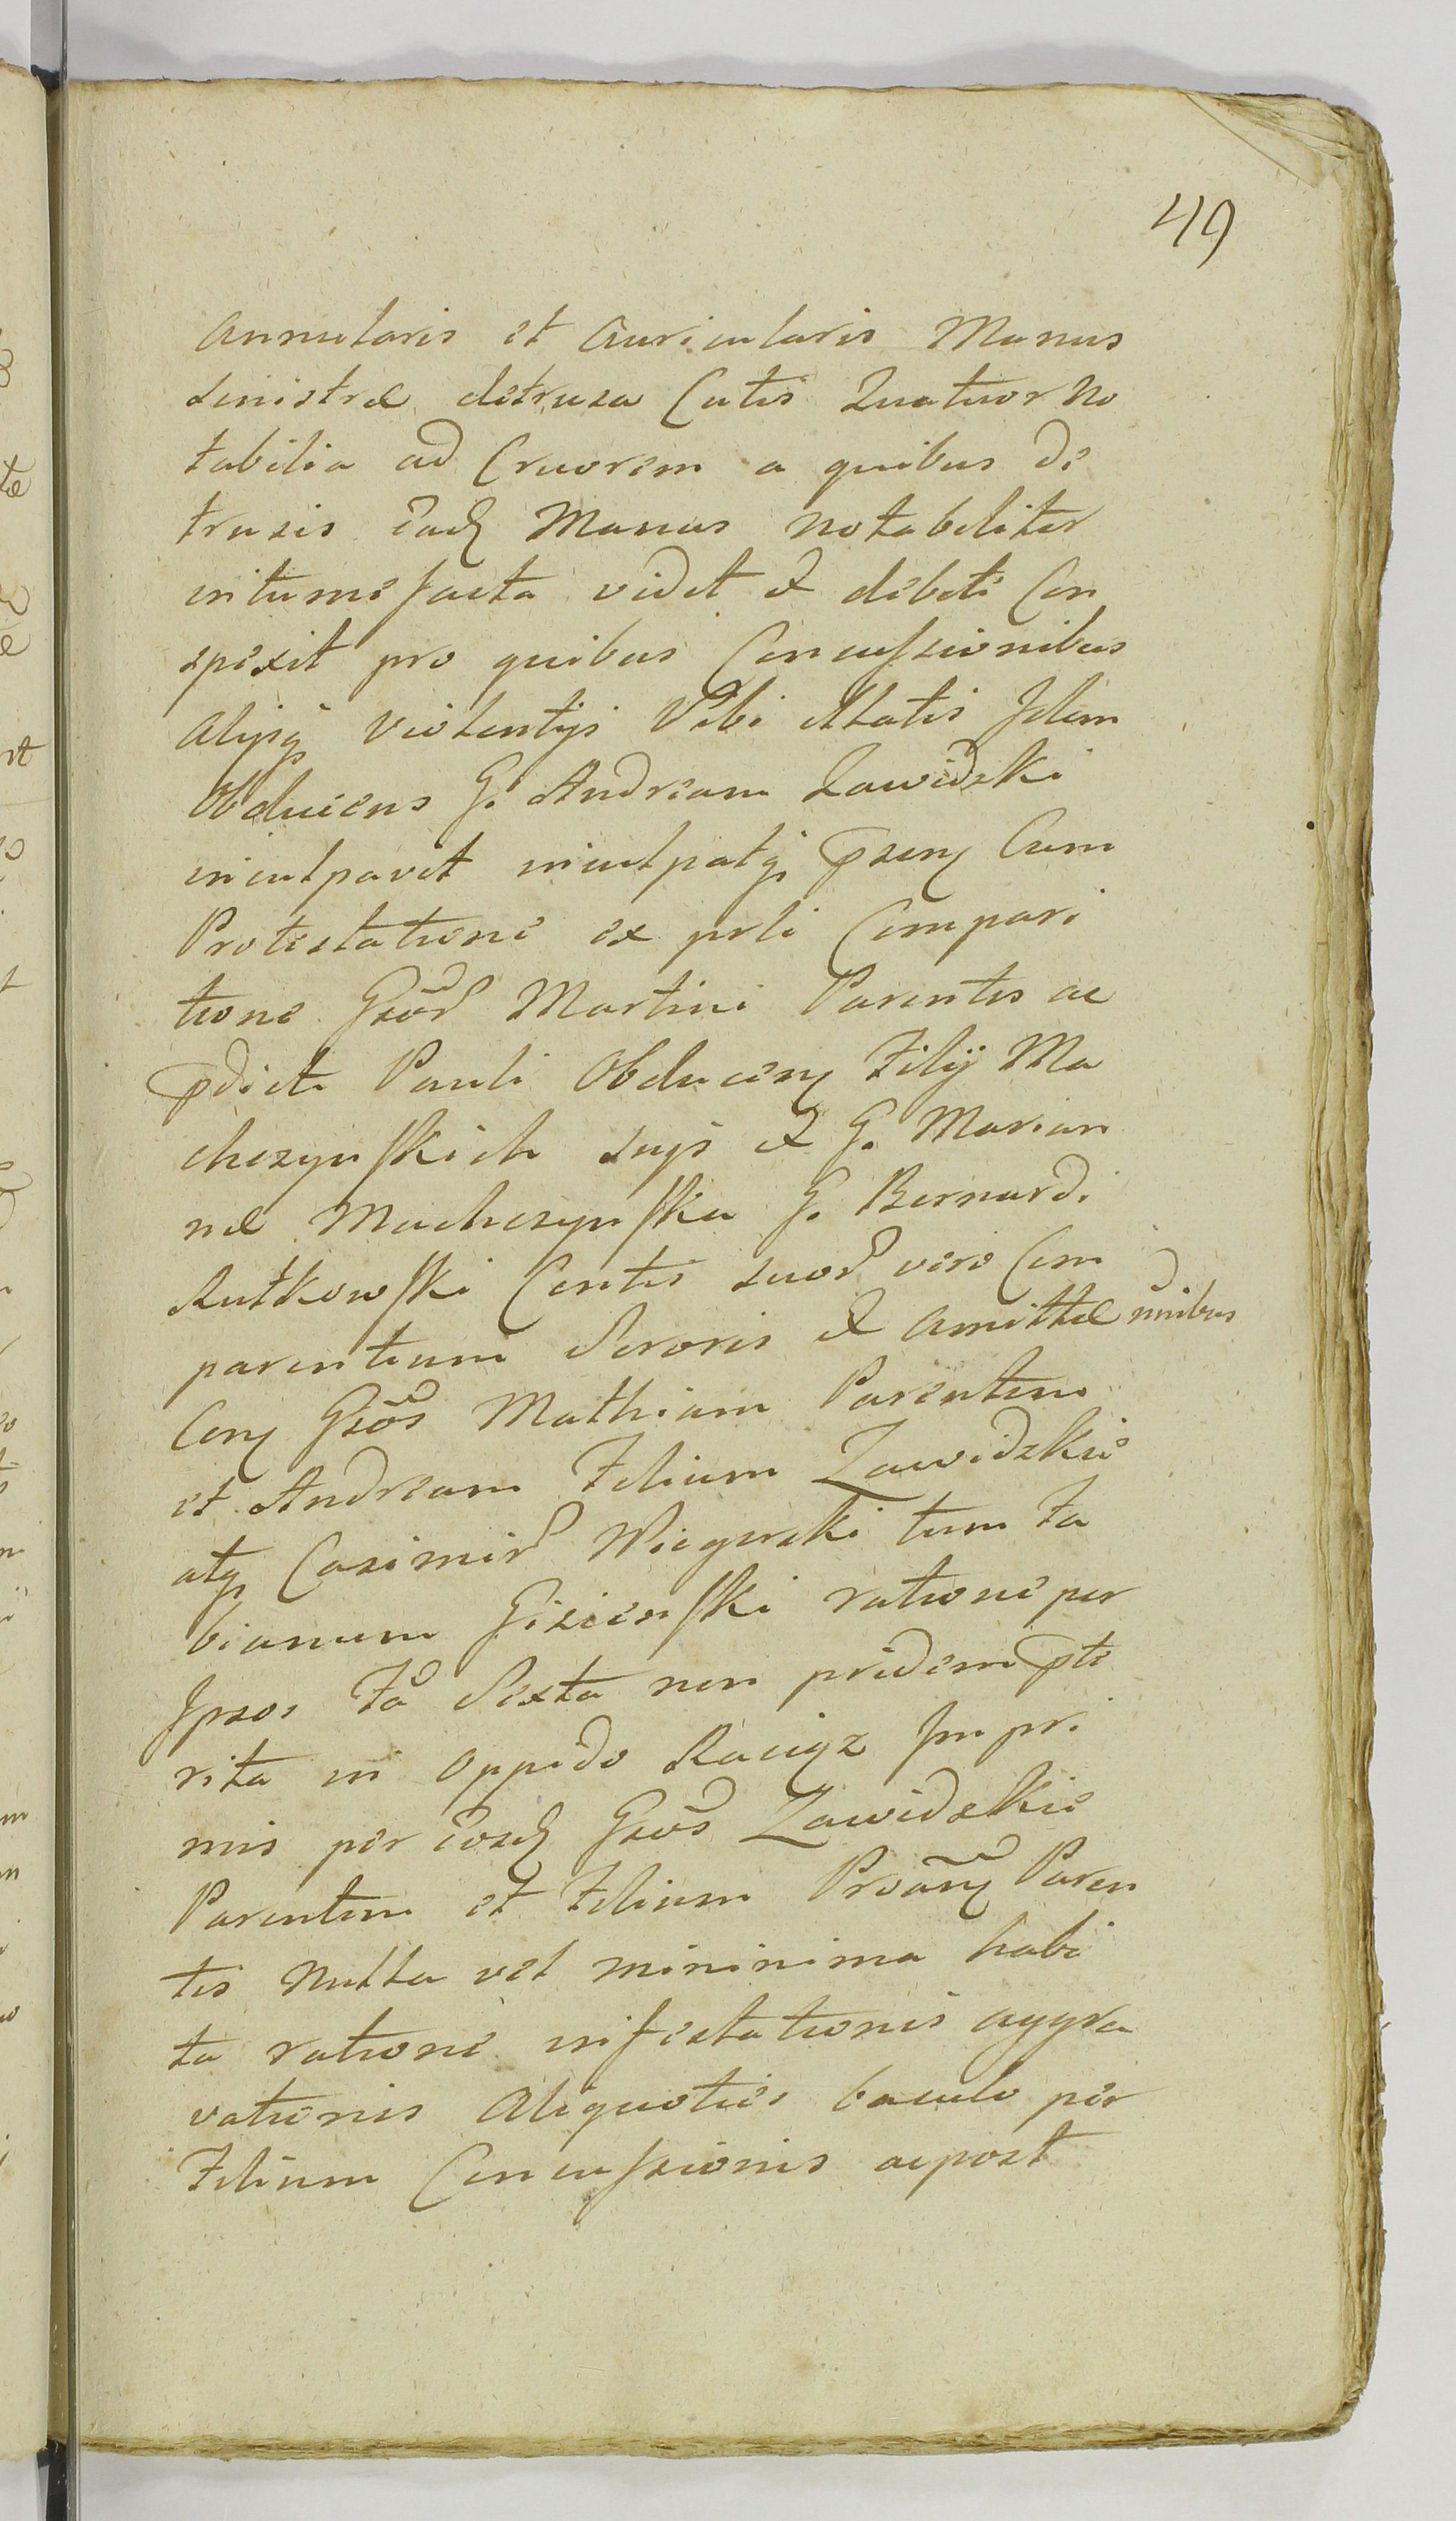 49
Annularis et Auricularis Manus
sinistræ detrusa Cutis Quatuor No
tabilia ad Cruorem a quibus de
trusis eadę Manus notabiliter
intumefacta vidit et debite Con
spexit pro quibus Concussionibus
alijsq violentijs Sibi illatis Idem
Obducens G. Andream Zawidzki
inculpavit inculpatq pseny Cum
Protestatione ex prli Compari
tione Gsor Martini Parentis ac
pdicti Pauli Obduceny Filij Ma
chczynskich suijs et G. Marian
næ Machczynska G. Bernardi
Rutkowski Contis suor vero Com
parentium Sororis et Amittæ nnibus
Cony Gsos Mathiam Parentem
et Andream Filium Zawidzkie
atq Casimir Wiczewski tum Fa
bianum Gizienski ratione per
Ipsos Fa Sexta non pridem pte
rita in Oppido Raciąz Impri
mis per eosdę Gsos Zawidzkie
Parentem et Filium Proany Paren
tis Nulla vel mininima habi
ta ratione infestationis aggra
vationis Aliquoties baculo per
Filium Concussionis acpost